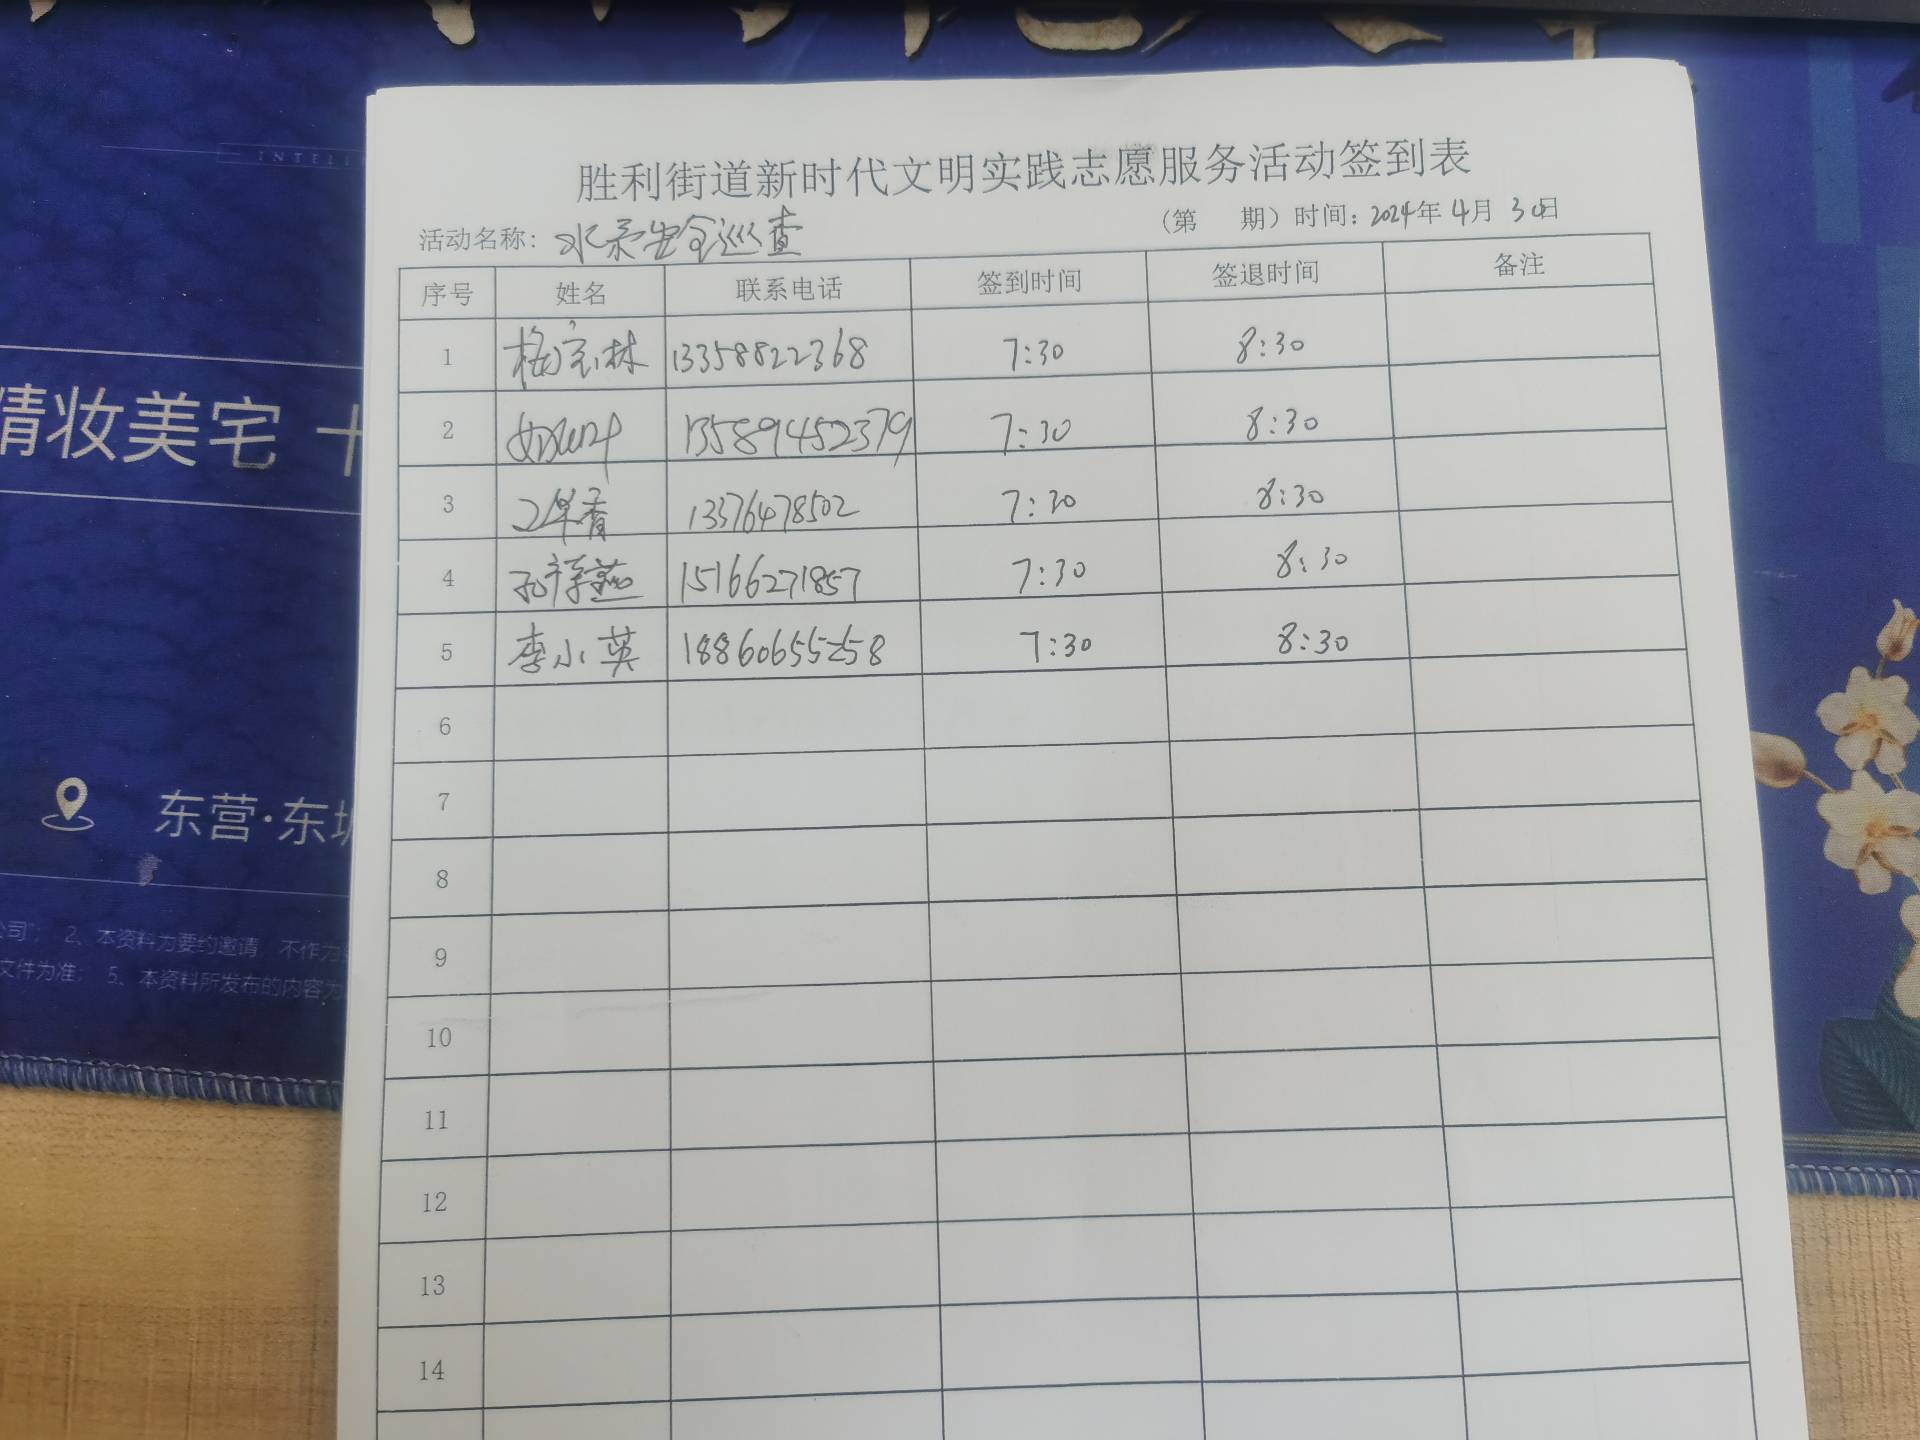 INTELLI
胜利街道新时代文明实践志愿服务活动签到表
活动名称: 水系安全巡查
(第 期) 时间: 2024年 4月 30日
序号 姓名 联系电话 签到时间 签退时间 备注
1 13358822368 7:30 8:30
2 13589452379 7:30 8:30
3 13376478502 7:30 8:30
4 孔祥燕 15166271857 7:30 8:30
5 李小英 18860655258 7:30 8:30
6
7
8
9
10
11
12
13
14
精妆美宅 十
东营·东城
公司"; 2、本资料为要约邀请, 不作为
文件为准; 5、本资料所发布的内容为